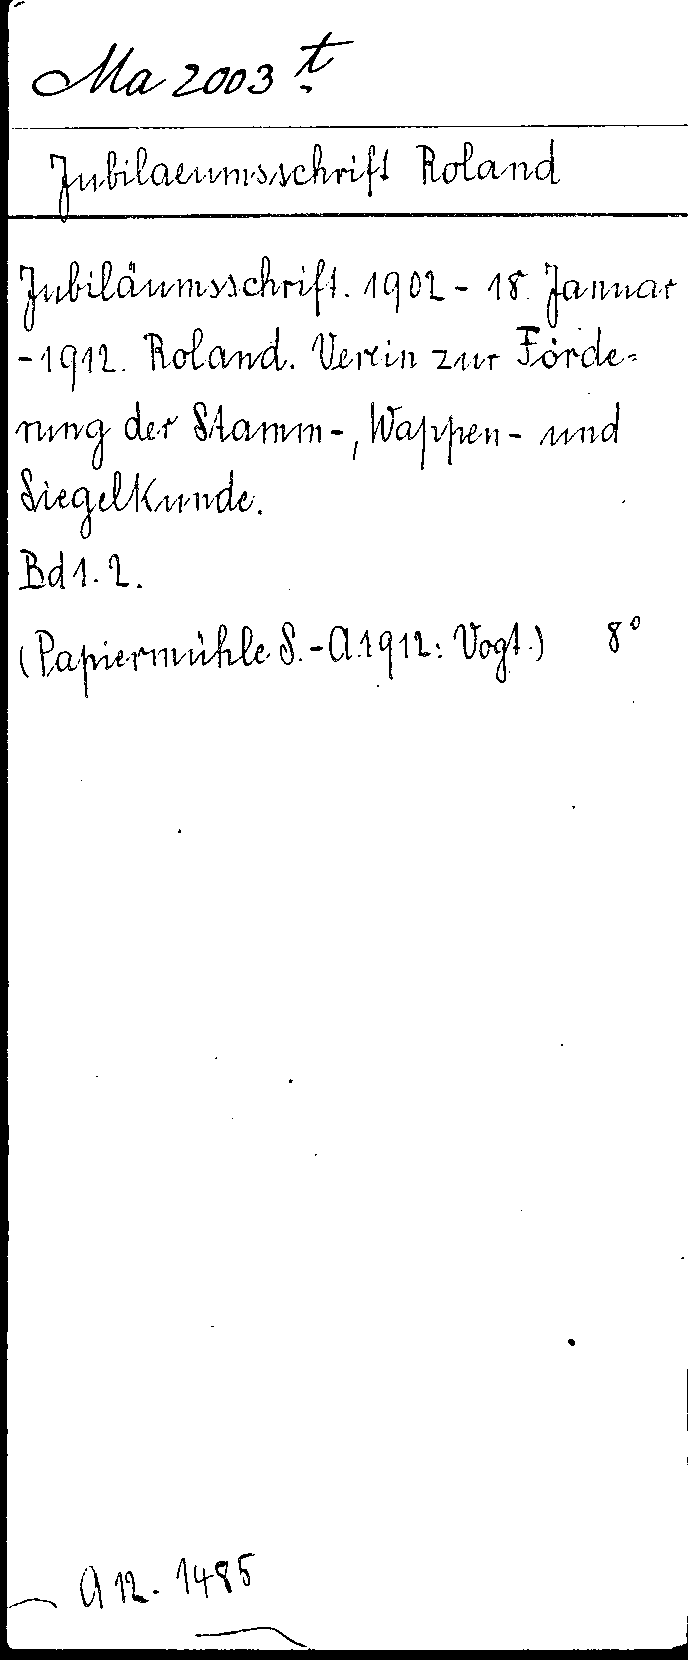 Ma 2003 t.
Jubilaeumsschrift Roland
Jubiläumsschrift. 1902 - 18. Januar
- 1912. Roland. Verein zur Förde-
rung der Stamm-, Wappen- und
Siegelkunde.
Bd 1. 2.
(Papiermühle S.-A. 1912: Vogt.) 8°
A 12. 1485